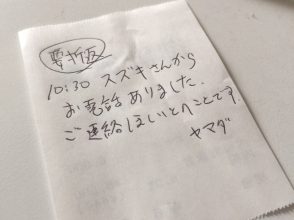 要折返
10:30 スズキさんから
お電話ありました.
ご連絡ほしいとのことです.
ヤマダ